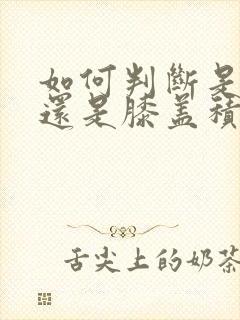 如何判斷是
還是膝蓋積
舌尖上的奶茶